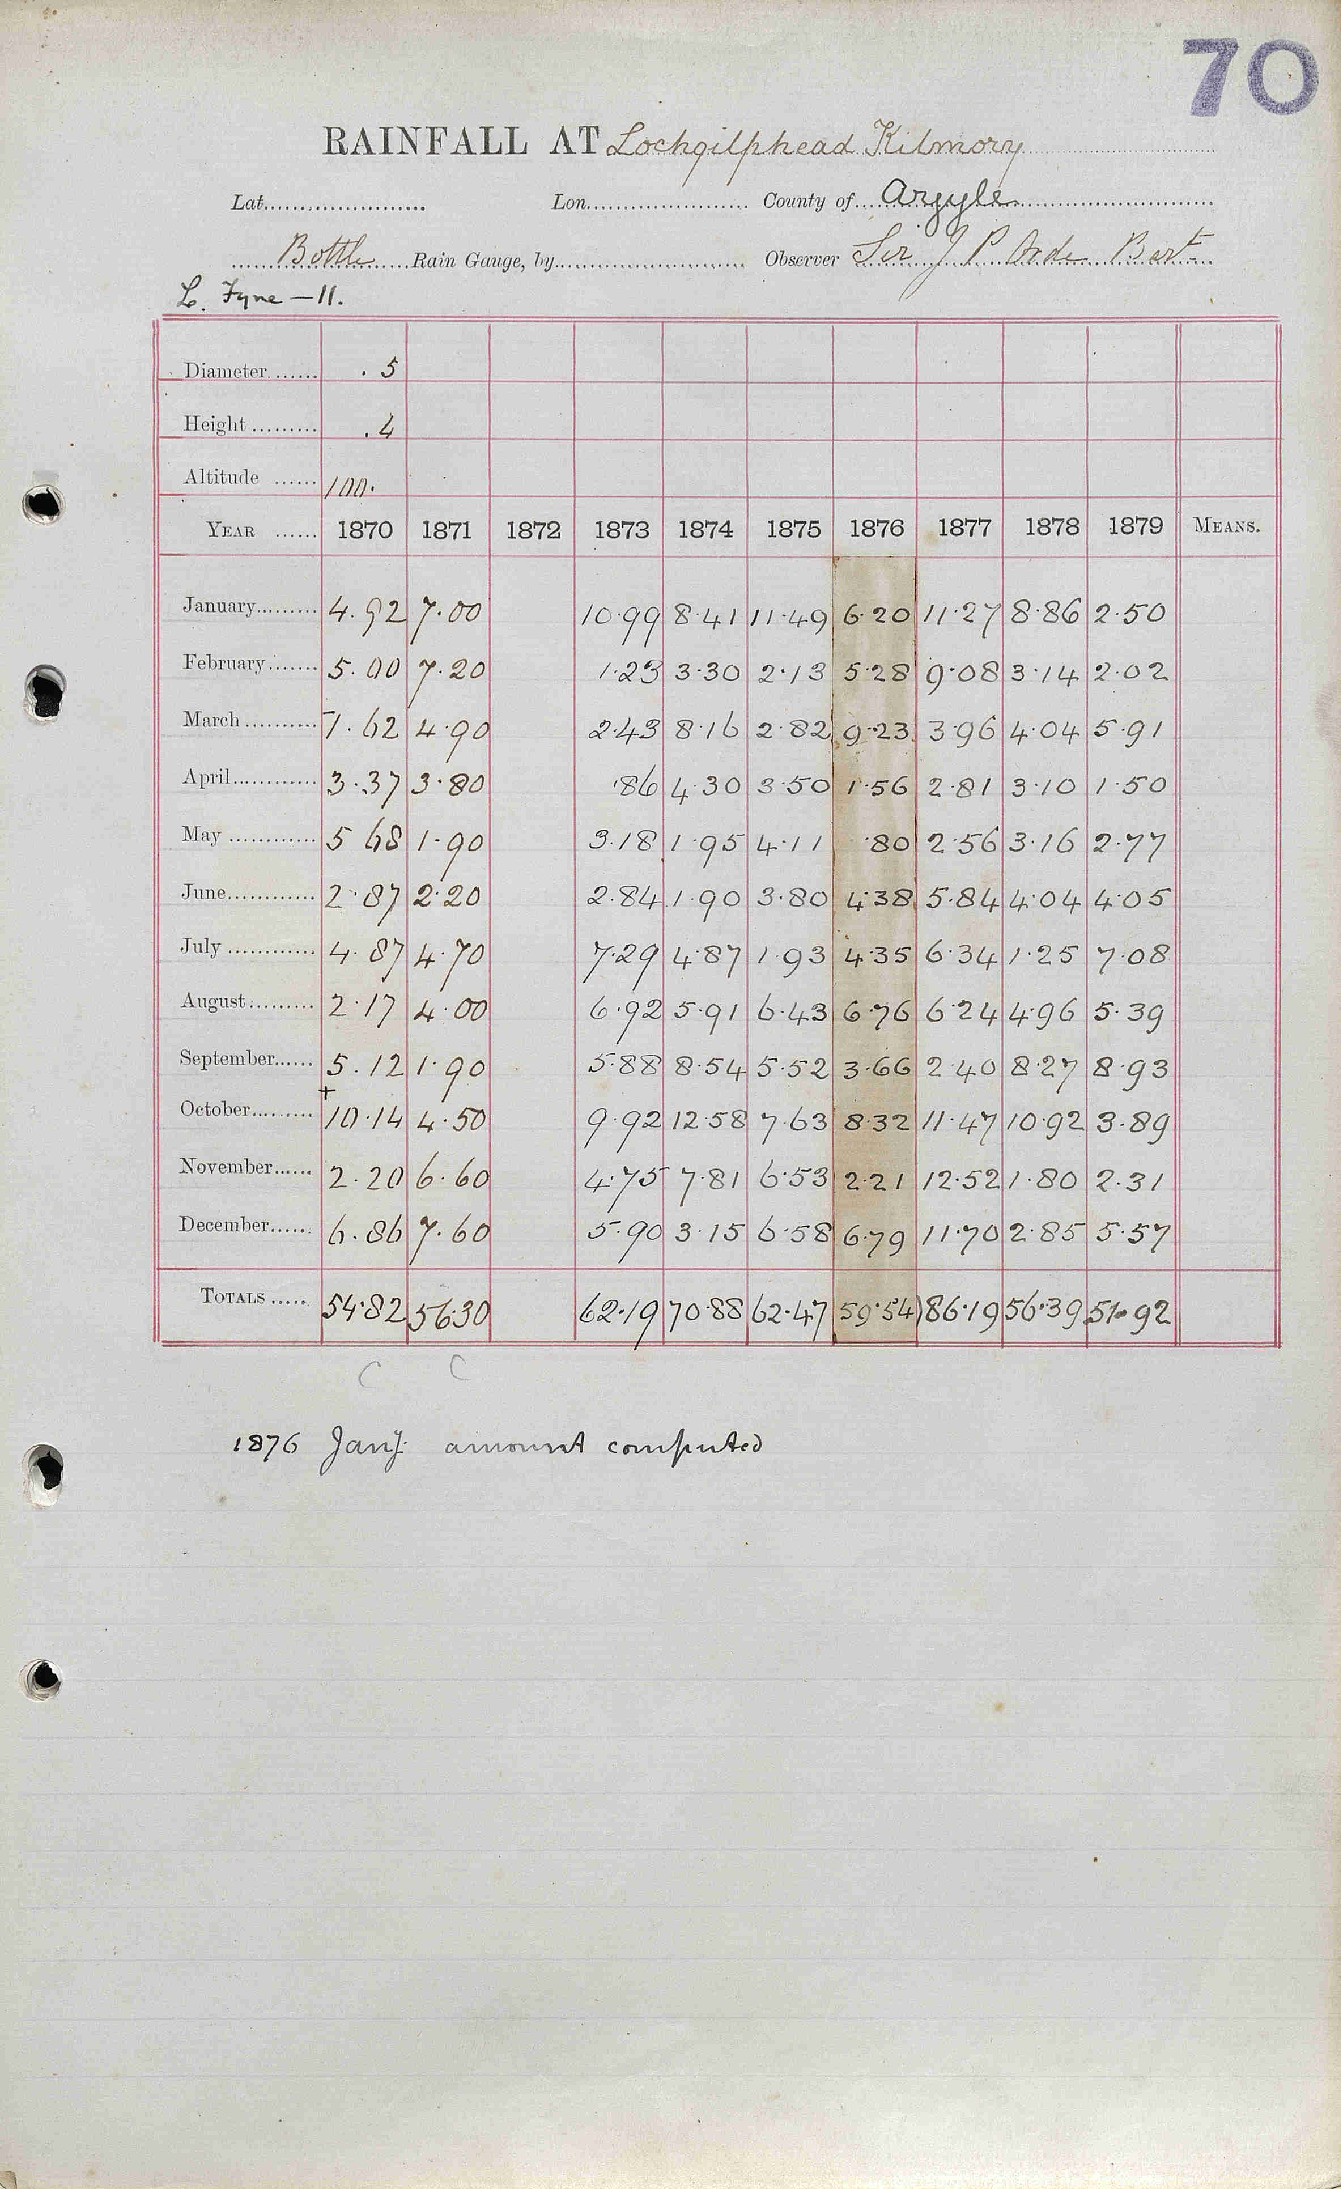 70
RAINFALL AT Lochgilphead Kilmory
Lat. Lon. County of Argyle
Bottle Rain Gauge, by Observer Sir J P Orde Bart
L. Fyne – 11.
Diameter .5
Height .4
Altitude 100.
YEAR 1870 1871 1872 1873 1874 1875 1876 1877 1878 1879 MEANS.
January 4.92 7.00 10.99 8.41 11.49 6.20 11.27 8.86 2.50
February 5.00 7.20 1.23 3.30 2.13 5.28 9.08 3.14 2.02
March 7.62 4.90 2.43 8.16 2.82 9.23 3.96 4.04 5.91
April 3.37 3.80 .86 4.30 3.50 1.56 2.81 3.10 1.50
May 5 68 1.90 3.18 1.95 4.11 .80 2.56 3.16 2.77
June 2.87 2.20 2.84 1.90 3.80 4.38 5.84 4.04 4.05
July 4.87 4.70 7.29 4.87 1.93 4.35 6.34 1.25 7.08
August 2.17 4.00 6.92 5.91 6.43 6.76 6.24 4.96 5.39
September 5.12 1.90 5.88 8.54 5.52 3.66 2.40 8.27 8.93
+
October 10.14 4.50 9.92 12.58 7.63 8.32 11.47 10.92 3.89
November 2.20 6.60 4.75 7.81 6.53 2.21 12.52 1.80 2.31
December 6.86 7.60 5.90 3.15 6.58 6.79 11.70 2.85 5.57
TOTALS 54.82 56.30 62.19 70.88 62.47 59.54) 86.19 56.39 51.92
C C
1876 Jany. amount computed